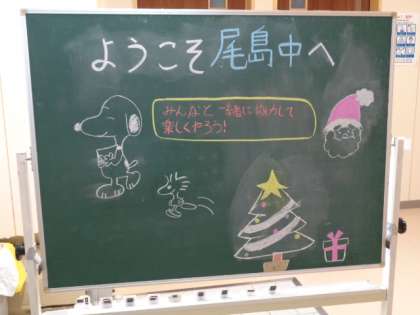 ようこそ尾島中へ
みんなと一緒に協力して
楽しくやろう!